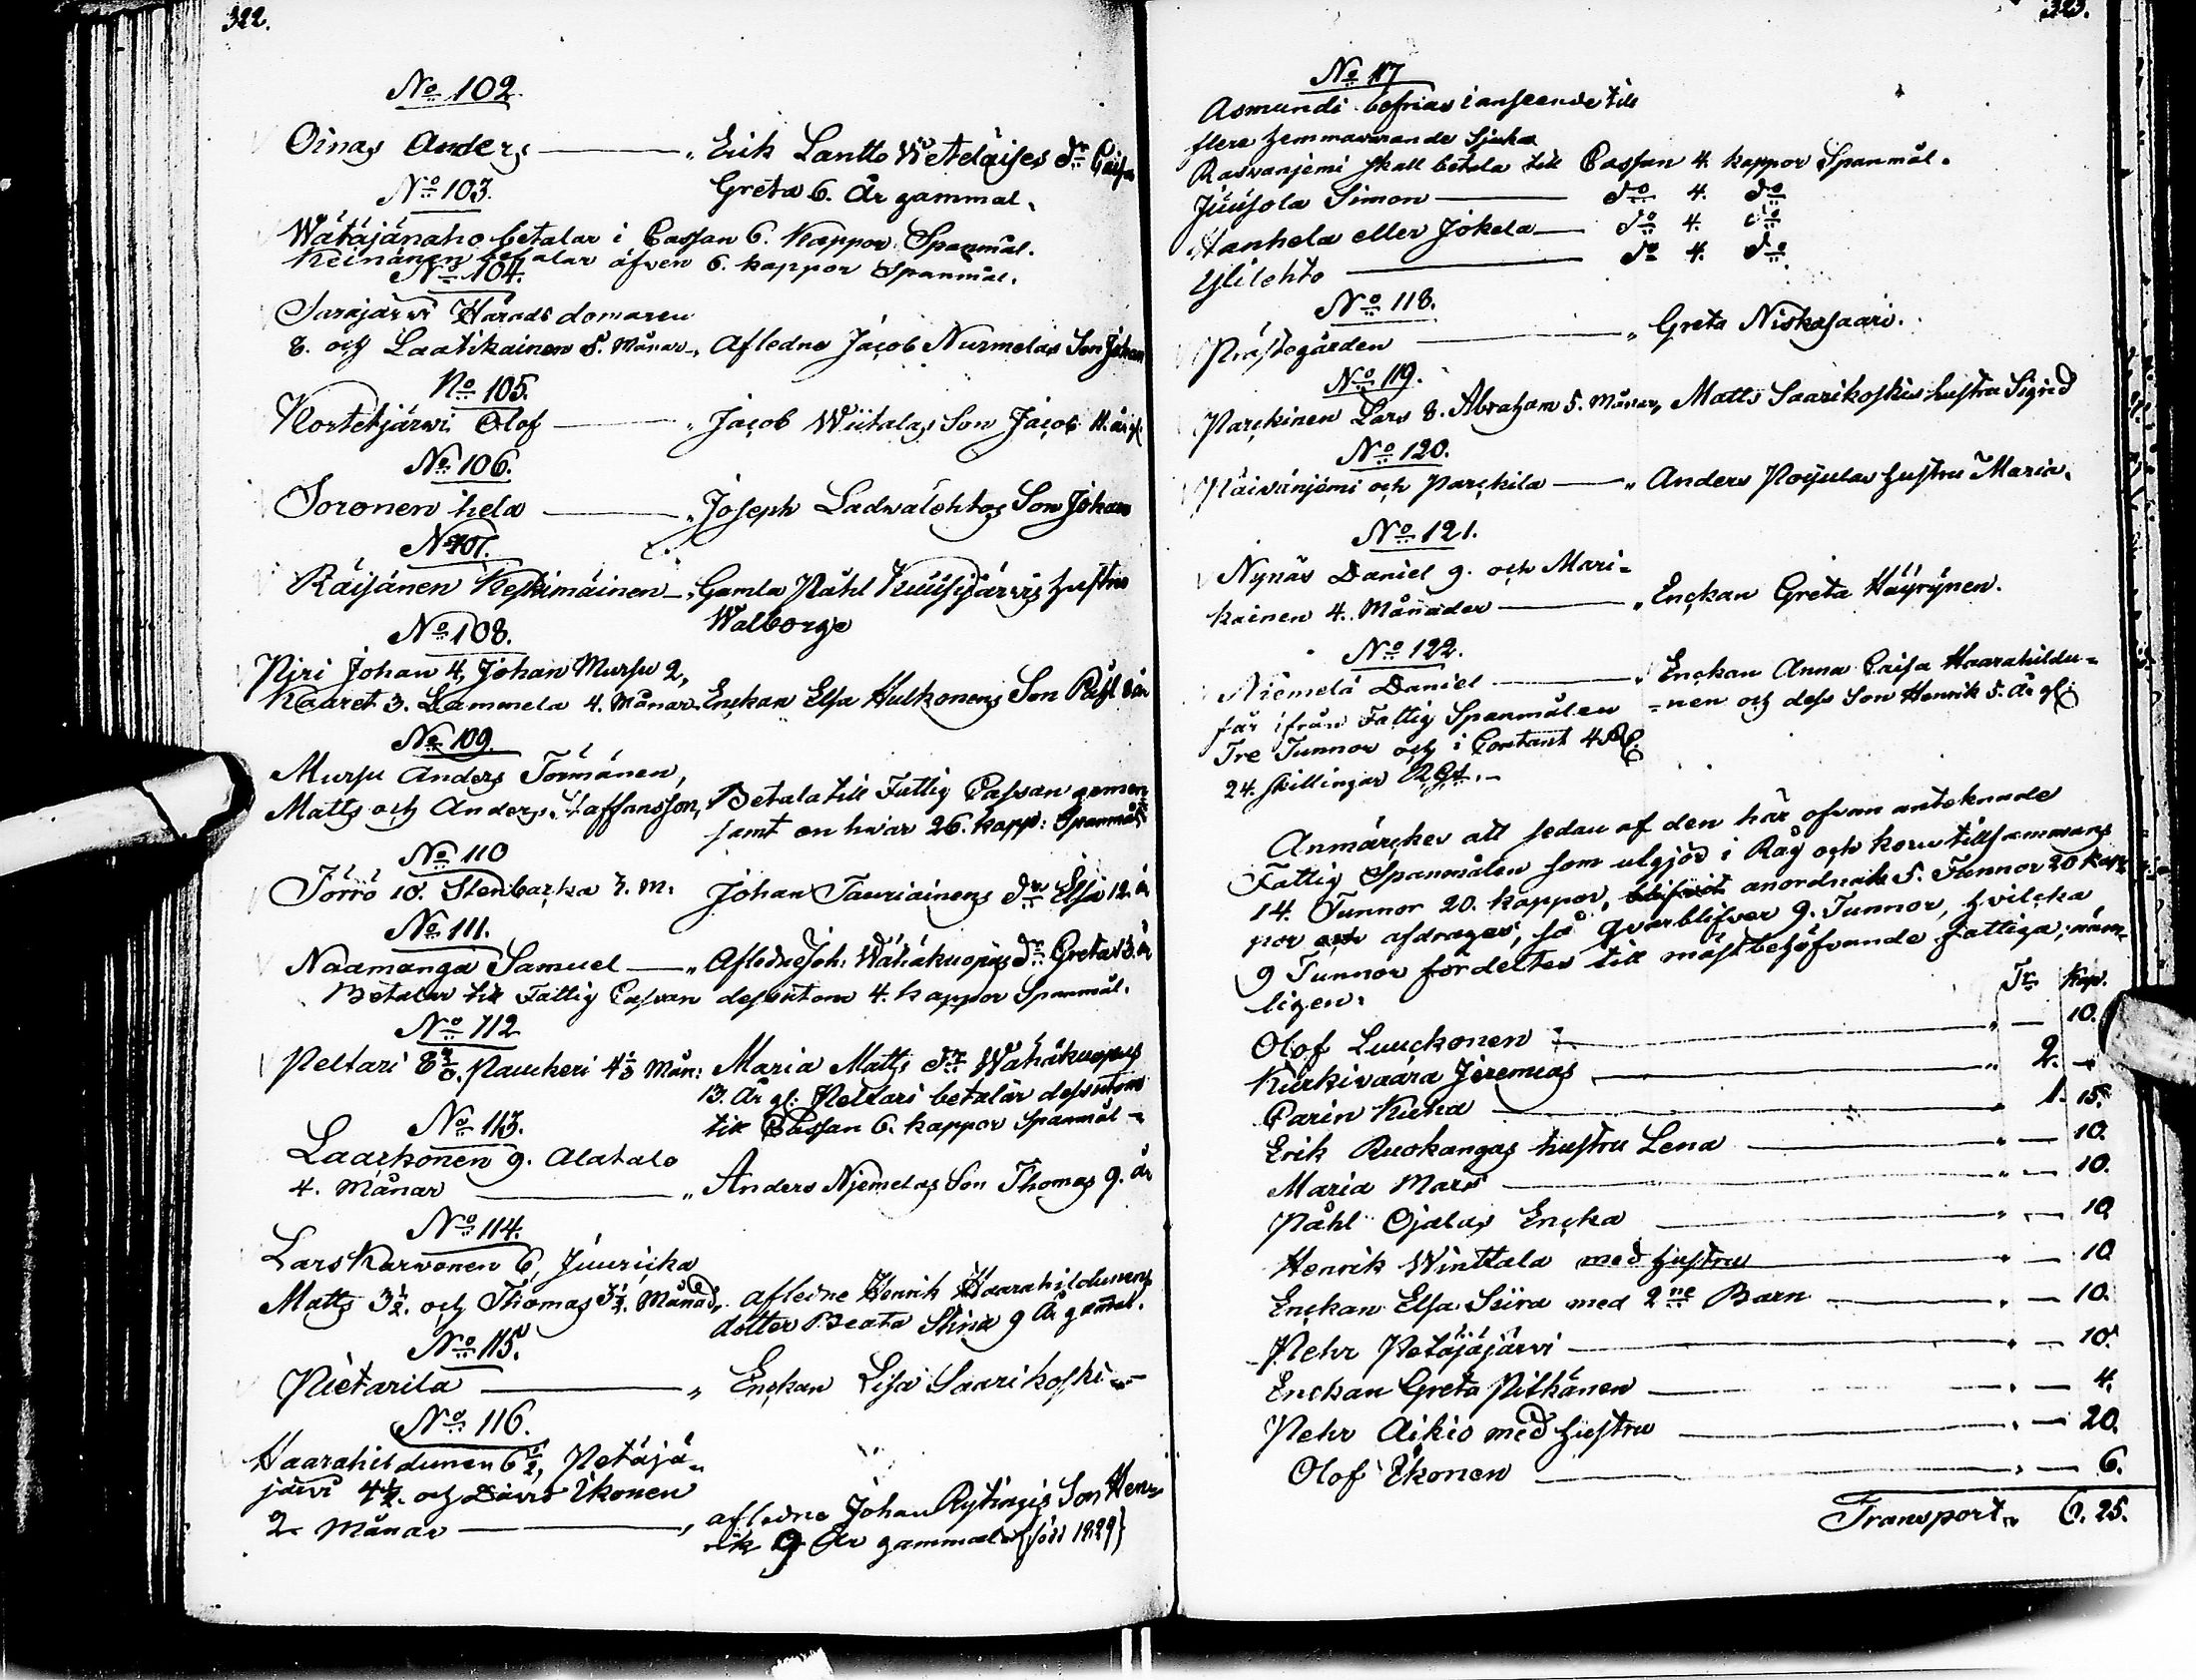 322.
No 102.
Oinas Anders — „ Erik Lantto Wietaläises dr Caisa
Greta 6. År gammal.
No 103.
Wätäjänaho betalar i Cassan 6. Kappor Spanmål.
Keinänen betalar äfven 6. kappor Spanmål.
No 104.
Sarajärvi Härads domaren
8. och Laatikainen 5. Månar „ Afledne Jacob Nurmelas Son Johan
No 105.
Kortetjärwi Olof — „ Jacob Wiitalas Son Jacob 11. år gl.
No 106.
Soronen hela — „ Joseph Ladvalehtos Son Johan
No 107.
Räisänen Keskimäinen — „ Gamla Påhl Kuusijärvis hustru
Walborg
No 108.
Piri Johan 4, Johan Mursu 2,
Kaaret 3. Lammela 4. Månar. Enckan Elsa Hulkonens Son Påhl 8 år
No 109.
Mursu Anders Törmänen,
Matts och Anders Staffansson, Betala till Fattig Cassan gemen
samt en hwar 26. kapp: Spanmål
No 110
Törrö 10. Stenbacka 2. M: Johan Tauriainens dr Elsa 12. år
No 111.
Naamanga Samuel — „ Afledne Joh: Wähäkuopus dr Greta 13. år
Betalar till Fattig Cassan dessutom 4. kappor Spanmål.
No 112
Peltari 8 Pauckeri 4 Mån: Maria Matts dr Wähäkuopus
13. År gl: Peltari betalar dessutom
till Cassan 6. kappor Spanmål –
No 113.
Laackonen 9. Alatalo
4. Månar — „ Anders Njemelas Son Thomas 9. år
No 114.
Lars Karvonen 6, Juuricka
Matts 3½. och Thomas 3½. Månad, afledne Henrik Haarahildunens
dotter Beata Stina 9 År gamal.
No 115.
Pietarila — „ Enckan Lisa Saarikoski –
No 116.
Haarahildunen 6½, Petäjä-
järvi 4½. och David Ikonen
2 Månar — , afledne Johan Rytingis Son Hen-
rik 9 År gammal (föd 1829)
323.
No 117
Asmundi befrias i anseende till
flere hemmavarande Sjuka
Raswanjemi skall betala till Cassan 4. kappor Spanmål.
Juusola Simon — do 4. do
Hanhela eller Jokela — do 4. do
Ylilehto — do 4. do
No 118.
Prästegården — „ Greta Niskasaari.
No 119.
Parckinen Lars 8. Abraham 5. Månar, Matts Saarikoskis hustru Sigrid
No 120.
Päivänjemi och Parckila — „ Anders Poijulas hustru Maria.
No 121.
Nynäs Daniel 9. och Mari-
kainen 4. Månader — „ Enckan Greta Häyrynen.
No 122.
Niemelä Daniel — „ Enckan Anna Caisa Haarahildu-
får ifrån Fattig Spanmålen =nen och dess Son Henrik 5. År gl:
Tre Tunnor och i Contant 4
24. skillingar RGs. –
Anmärckes att sedan af den här ofvan antecknade
Fattig Spanmålen som utgjör i Råg och korn tillsammans
14. Tunnor 20. kappor, blifvit anordnat 5. Tunnor 20 kap-
por afdrages, så qvarblifver 9. Tunnor, hvilcka
9 Tunnor fördeltes till mäst behöfvande fattiga, näm-
ligen:
Tr Kap.
Olof Luuckonen — „ — 10.
Kurkivaara Jeremias — „ 2. –
Carin Kuha — „ 1. 15.
Erik Ruokangas hustru Lena — „ — 10.
Maria Mars — „ — 10.
Påhl Ojalas Encka — „ — 10
Henrik Winttala med hustru — „ — 10
Enckan Elsa Siira med 2ne Barn — „ — 10.
Pehr Petäjäjärvi — „ — 10.
Enckan Greta Pitkänen — „ — 4.
Pehr Aikio med hustru — „ — 20.
Olof Ikonen — „ — 6.
Transport „ 6. 25.